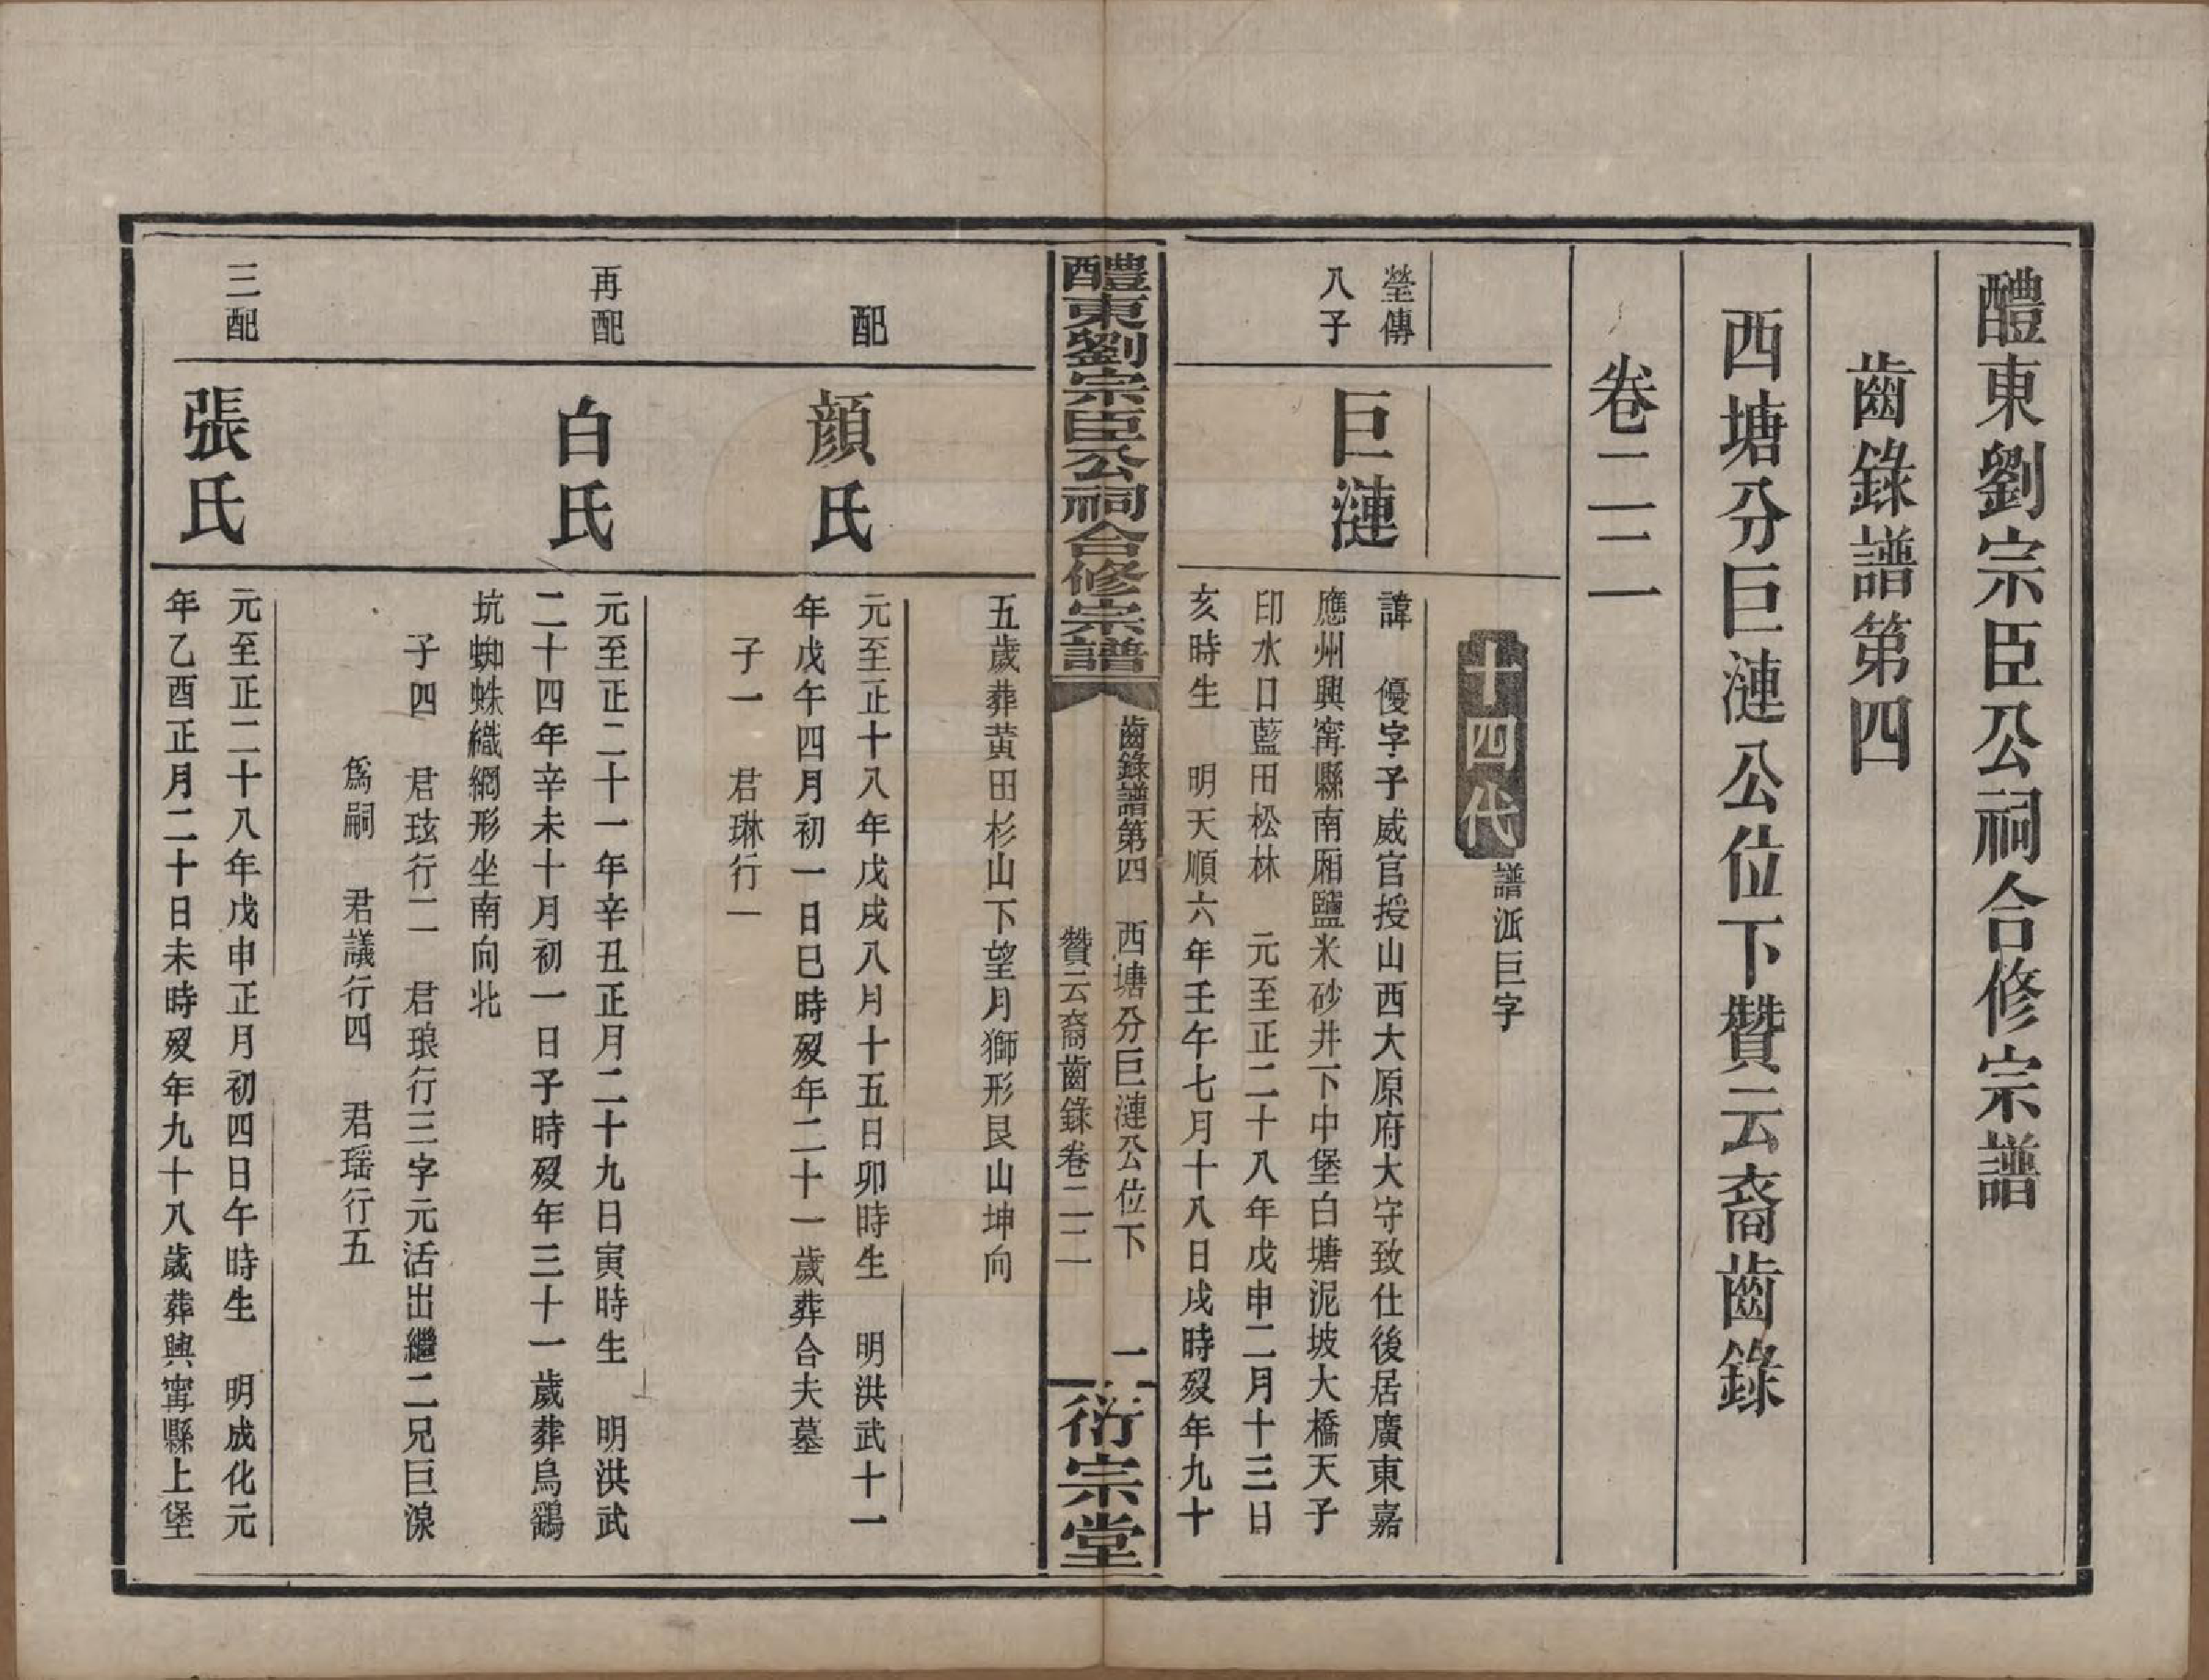 醴東劉宗臣公祠合修宗譜
齒錄譜第四
西塘分巨漣公位下贊云裔齒錄
卷二二
十四代
譜派巨字
瑩傳
八子
巨漣
諱　優字子威官授山西大原府大守致仕後居廣東嘉
應州興甯縣南厢鹽米砂井下中堡白塘泥坡大橋天子
印水口藍田松林　元至正二十八年戊申二月十三日
亥時生　明天順六年壬午七月十八日戌時歿年九十
醴東劉宗臣公祠合修宗譜
齒錄譜第四　西塘分巨漣公位下　一
贊云裔齒錄卷二二
衍宗堂
五歲葬黃田杉山下望月獅形艮山坤向
配
顏氏
元至正十八年戊戌八月十五日卯時生　明洪武十一
年戊午四月初一日巳時歿年二十一歲葬合夫墓
子一　君琳行一
再配
白氏
元至正二十一年辛丑正月二十九日寅時生　明洪武
二十四年辛未十月初一日子時歿年三十一歲葬烏鷄
坑蜘蛛織網形坐南向北
子四　君玹行二　君琅行三字元活出繼二兄巨湶
爲嗣　君議行四　君瑶行五
三配
張氏
元至正二十八年戊申正月初四日午時生　明成化元
年乙酉正月二十日未時歿年九十八歲葬興甯縣上堡